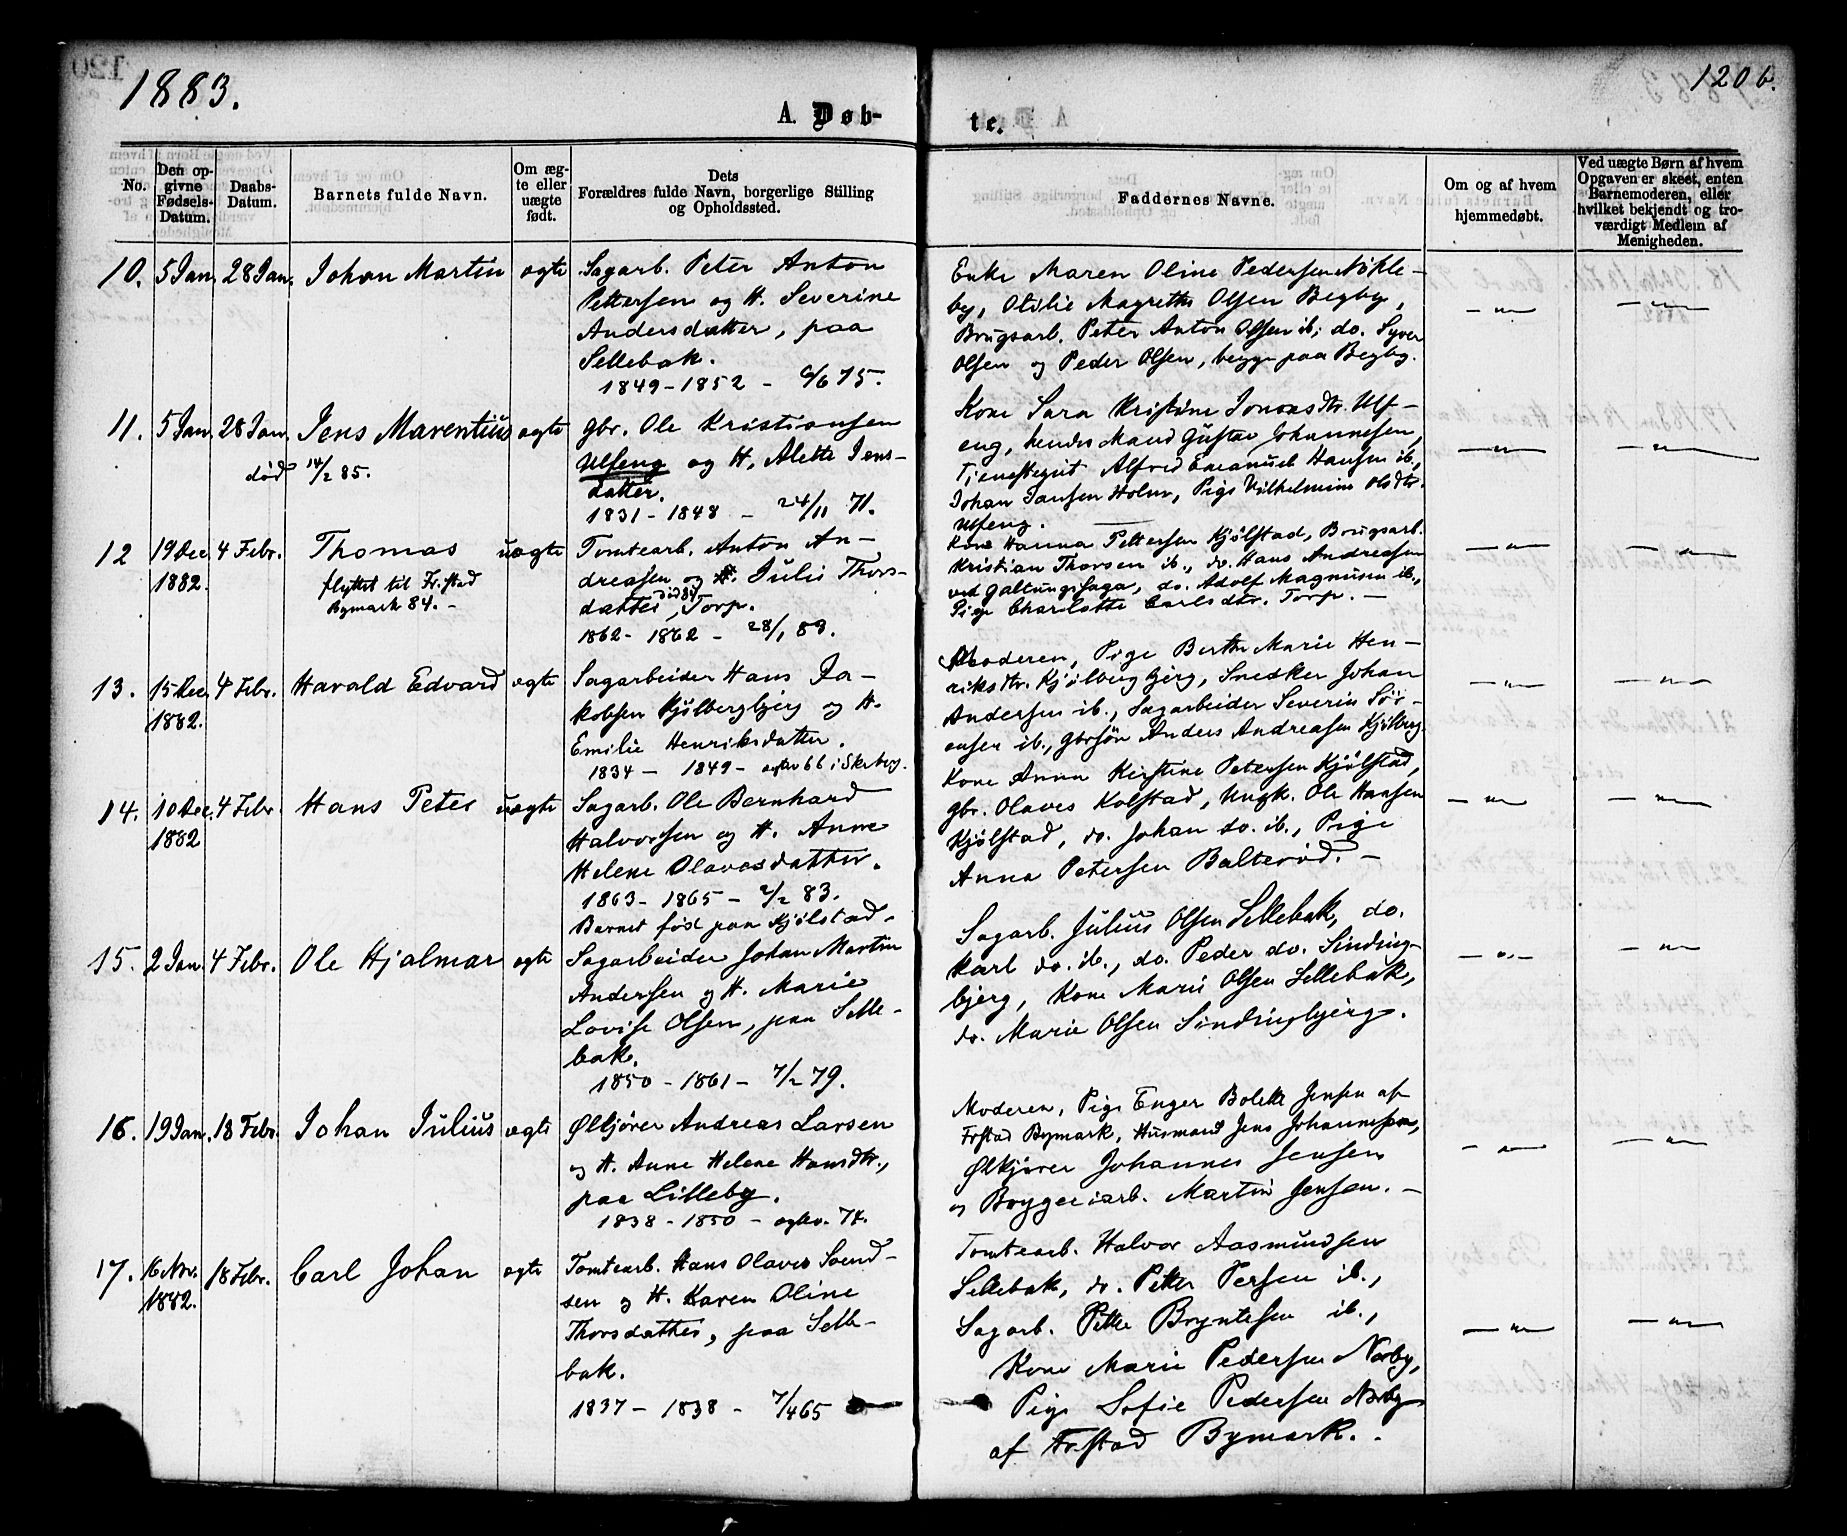 1883.
120 b.
A. Døb-
te.
No.
Den op-
givne
Fødsels-
Datum.
Daabs-
Datum.
Barnets fulde Navn.
Om æg-
te eller
uægte
født.
Dets
Forældres fulde Navn, borgerlige Stilling
og Opholdssted.
Faddernes Navne.
Om og af hvem
hjemmedøbt.
Ved uægte Børn af hvem
Opgaven er skeet, enten
Barnemoderen, eller
hvilket bekjendt og tro-
værdigt Medlem af
Menigheden.
10. 5 Jan. 28 Jan. Johan Martin ægte
Sagarb. Peter Anton
Pettersen og H. Severine
Andersdatter, paa
Sellebak.
1849 - 1852 - 6/6 75.
Enke Maren Oline Pedersen Nøkle-
by, Otilie Magrethe Olsen Begby,
Brugsarb. Peter Anton Olsen ib., do. Syver
Olsen og Peder Olsen, begge paa Begby.
— " —
— " —
11. 5 Jan. 28 Jan. Jens Marentius ægte
død 14/2 85.
gbr. Ole Kristiansen
Ulfeng og H. Alette Jens-
datter.
1831 - 1848 - 24/11 71.
Kone Sara Kristine Jonasdtr. Ulf-
eng, hendes Mand Gustav Johannesen,
Tjenestegut Alfred Emanuel Hansen ib.,
Johan Jansen Holm, Pige Vilhelmine Olsdtr.
Ulfeng.
— " —
— " —
12 19 Dec. 1882. 4 Febr. Thomas uægte
flyttet til Fr.stad
Bymark 84. -
Tomtearb. Anton An-
dreasen og H. Julie Thors-
datter, Torp.
død 84
1862 - 1862 - 28/1 83.
Kone Hanna Pettersen Kjølstad, Brugsarb.
Kristian Thorsen ib., do. Hans Andreasen
ved Galtungsaga, do. Adolf Magnusen ib.,
Pige Charlotte Carlsdtr. Torp. -
— " —
— " —
13. 15 Dec. 1882. 4 Febr. Harald Edvard ægte
Sagarbeider Hans Ja-
kobsen Kjølbergbjerg og H.
Emilie Henriksdatter.
1834 - 1849 - ægtev 66 i Skeberg.
Moderen, Pige Berthe Marie Hen-
riksdtr. Kjølbergbjerg, Snedker Johan
Andersen ib., Sagarbeider Severin Sør-
ensen ib., gbrsøn Anders Andreasen Kjølberg.
— " —
— " —
14. 10 Dec. 1882 4 Febr. Hans Peter uægte
Sagarb. Ole Bernhard
Halvorsen og H. Anne
Helene Olavesdatter.
1863 - 1865 - 2/2 83.
Barnet født paa Kjølstad.
Kone Anna Kirstine Petersen Kjølstad,
gbr. Olaves Kolstad, Ungk. Ole Hansen
Kjølstad, do. Johan do. ib., Pige
Anna Petersen Balterød. -
— " —
— " —
15. 2 Jan. 4 Febr. Ole Hjalmar ægte
Sagarbeider Johan Martin
Andersen og H. Marie
Lovise Olsen, paa Selle-
bak.
1850 - 1861 - 7/2 79.
Sagarb. Julius Olsen Sellebak, do.
Karl do. ib., do. Peder do. Sinding-
bjerg, Kone Marie Olsen Sellebak,
do. Marie Olsen Sindingbjerg.
— " —
— " —
16. 19 Jan. 18 Febr. Johan Julius ægte
Ølkjører Andreas Larsen
og H. Anne Helene Hansdtr.,
paa Lilleby.
1838 - 1850 - ægtev. 74.
Moderen, Pige Enger Bolette Jensen af
Frstad Bymark, Husmand Jens Johannessen,
Ølkjører Johannes Jensen
og Bryggeriarb. Martin Jensen. -
— " —
— " —
17. 16 Nov. 1882. 18 Febr. Carl Johan ægte
Tomtearb. Hans Olaves Svend-
sen og H. Karen Oline
Thorsdatter, paa Selle-
bak.
1837 - 1838 - 7/4 65
Tomtearb. Halvor Aasmundsen
Sellebak, do. Petter Persen ib.,
Sagarb. Petter Bryntesen ib.,
Kone Marie Pedersen Norby,
Pige Sofie Pedersen Norby
af Frstad Bymark. -
— " —
— " —